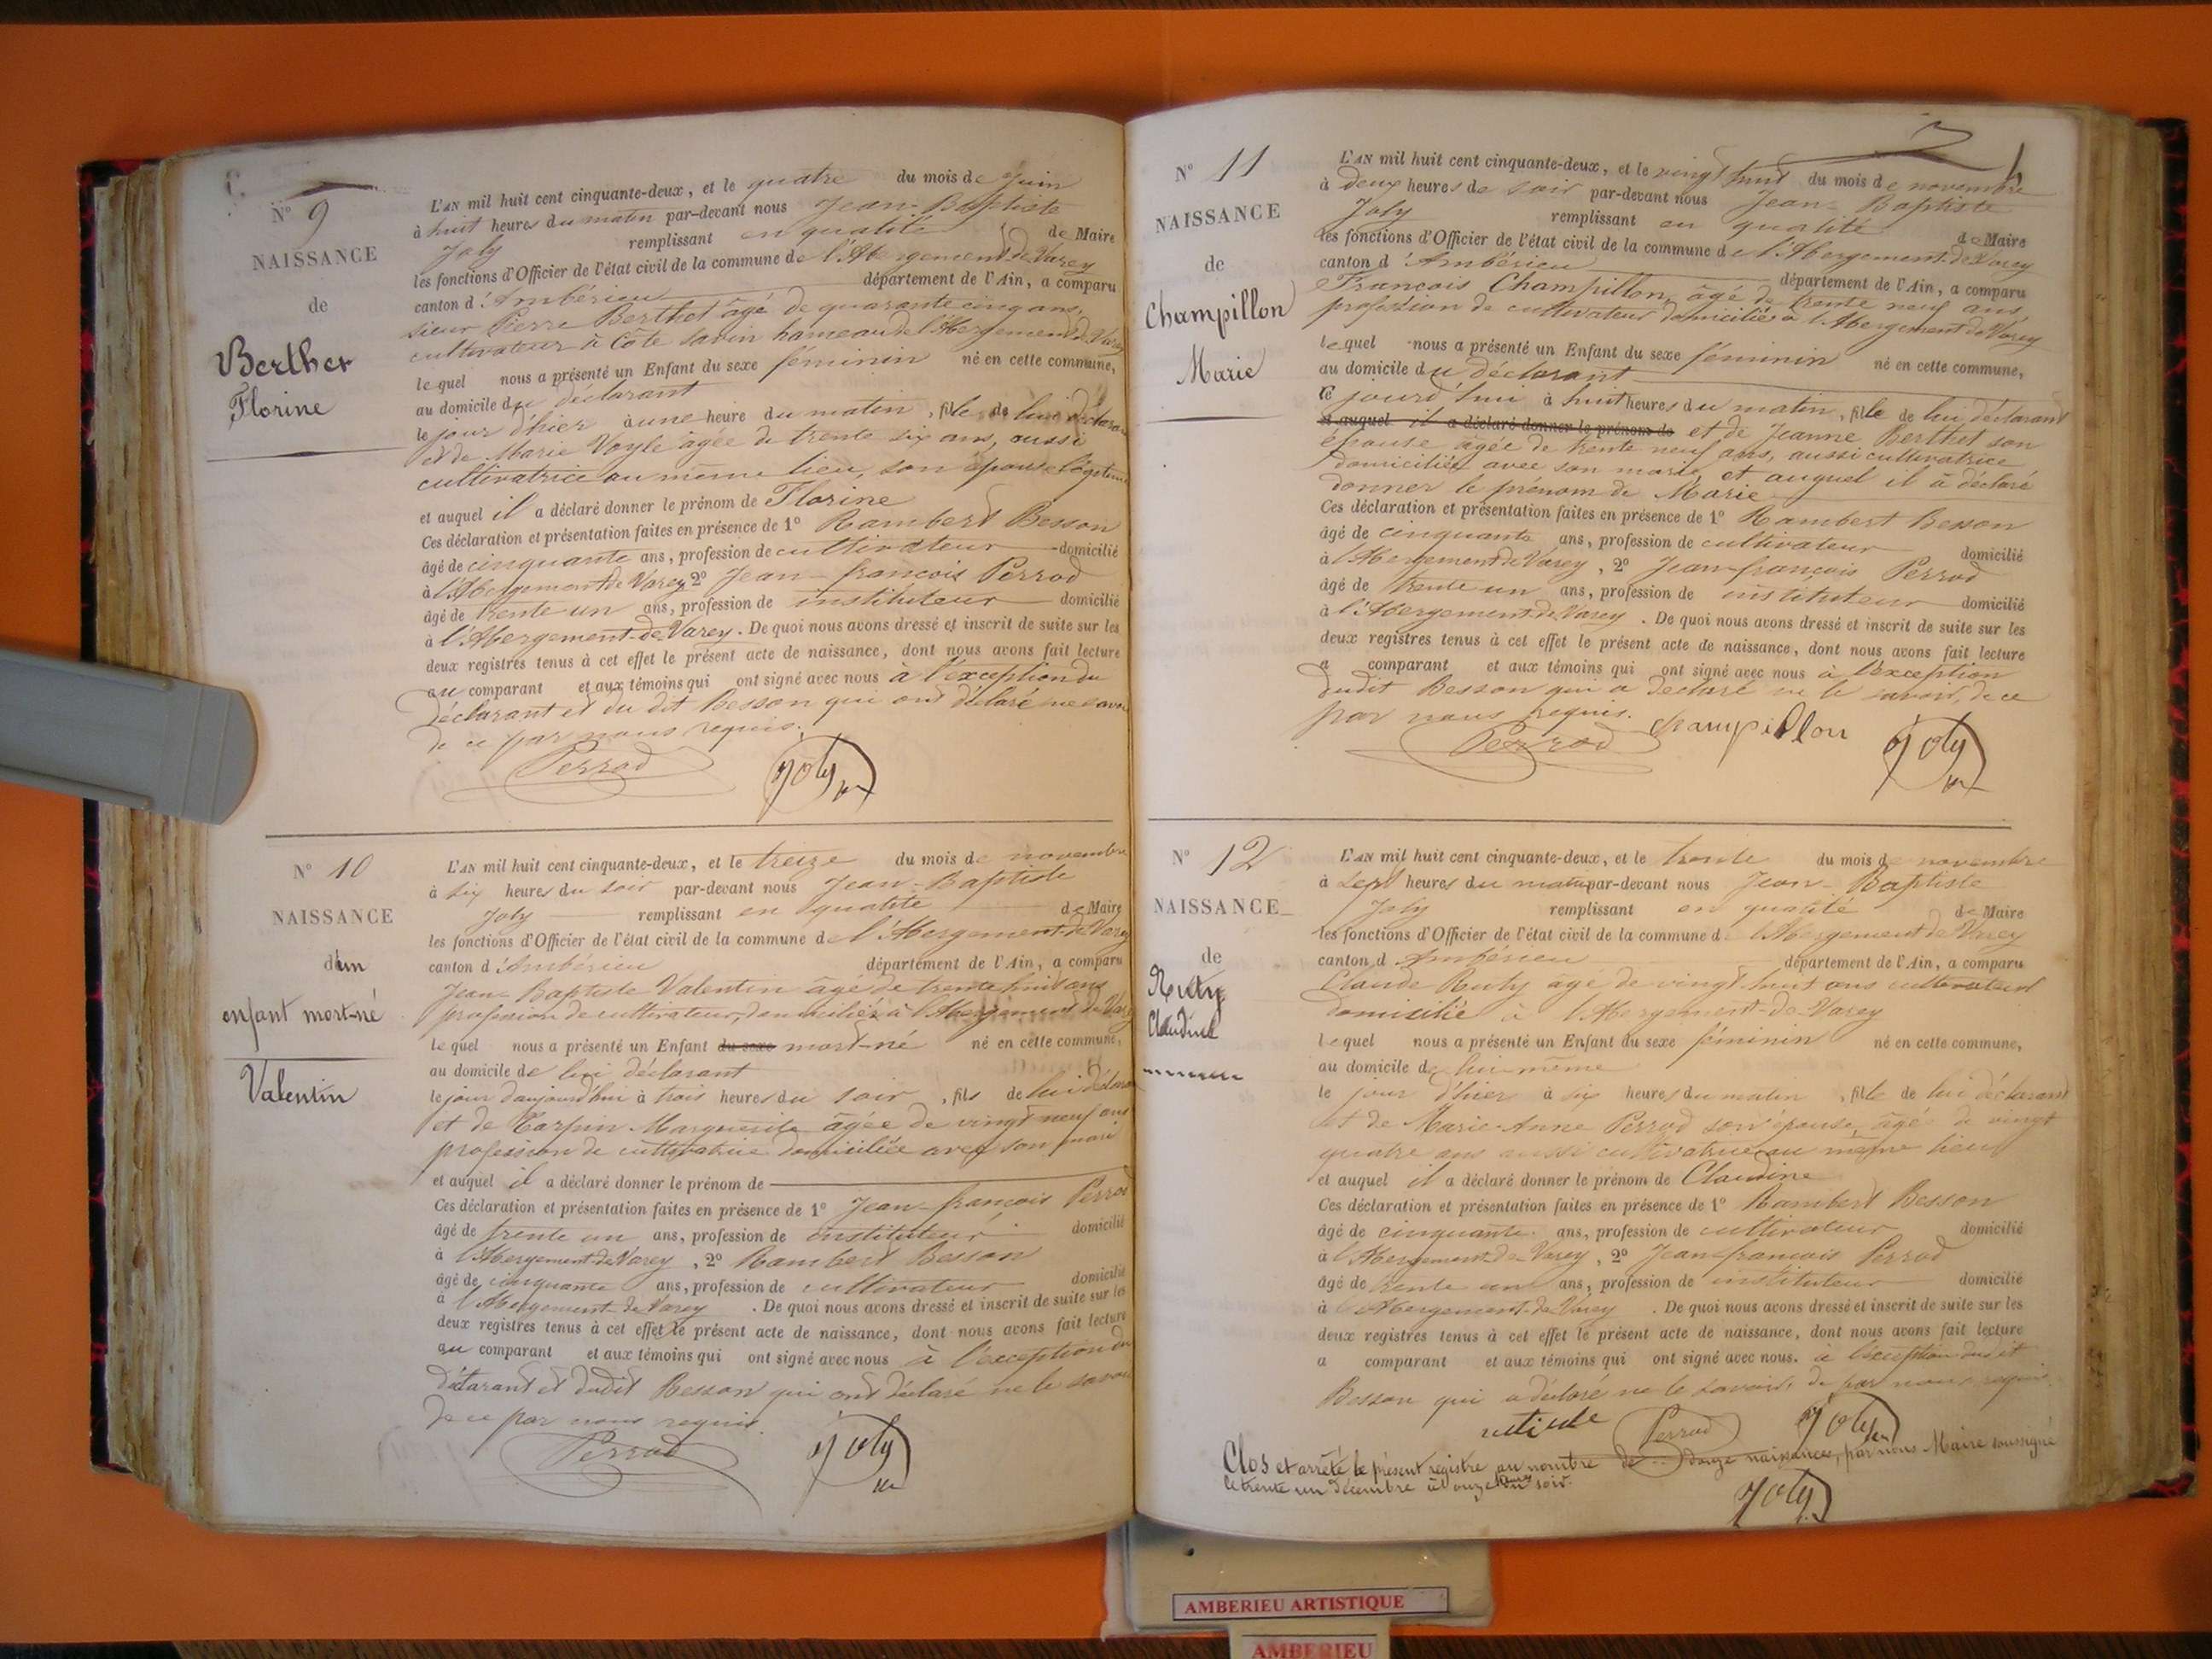 N° 9
NAISSANCE
de
Berthet
Florine
L'AN mil huit cent cinquante-deux, et le quatre du mois de juin
à huit heures du matin par-devant nous Jean-Baptiste
Joly remplissant en qualité de Maire
les fonctions d'Officier de l'état civil de la commune de l'Abergement de Varey
canton d'Ambérieu département de l'Ain, a comparu
sieur Pierre Berthet âgé de quarante cinq ans,
cultivateur à Côte Savin hameau de l'Abergement de Varey
lequel nous a présenté un Enfant du sexe féminin né en cette commune,
au domicile du déclarant
le jour d'hier à une heure du matin, fille de lui déclarant
et de Marie Voyle âgée de trente six ans, aussi
cultivatrice au même lieu, son épouse légitime
et auquel il a déclaré donner le prénom de Florine
Ces déclaration et présentation faites en présence de 1° Rambert Besson
âgé de cinquante ans, profession de cultivateur domicilié
à l'Abergement de Varey 2° Jean-françois Perrod
âgé de trente un ans, profession de instituteur domicilié
à l'Abergement-de-Varey. De quoi nous avons dressé et inscrit de suite sur les
deux registres tenus à cet effet le présent acte de naissance, dont nous avons fait lecture
au comparant et aux témoins qui ont signé avec nous à l'exception du
déclarant et du dit Besson qui ont déclaré ne savoir
de ce par nous requis.
Perrod Joly
N° 10
NAISSANCE
d'un
enfant mort-né
Valentin
L'AN mil huit cent cinquante-deux, et le treize du mois de novembre
à six heures du soir par-devant nous Jean-Baptiste
Joly remplissant en qualité de Maire
les fonctions d'Officier de l'état civil de la commune de l'Abergement-de-Varey
canton d'Ambérieu département de l'Ain, a comparu
Jean-Baptiste Valentin âgé de trente huit ans
profession de cultivateur, domicilié à l'Abergement de Varey
lequel nous a présenté un Enfant du sexe mort-né né en cette commune,
au domicile de lui déclarant
le jour d'aujourd'hui à trois heures du soir, fils de lui déclarant
et de Carpin Marguerite âgée de vingt neuf ans
profession de cultivatrice domiciliée avec son mari
et auquel il a déclaré donner le prénom de
Ces déclaration et présentation faites en présence de 1° Jean-françois Perrod
âgé de trente un ans, profession de instituteur domicilié
à l'Abergement de Varey, 2° Rambert Besson
âgé de cinquante ans, profession de cultivateur domicilié
à l'Abergement-de-Varey. De quoi nous avons dressé et inscrit de suite sur les
deux registres tenus à cet effet le présent acte de naissance, dont nous avons fait lecture
au comparant et aux témoins qui ont signé avec nous à l'exception du
déclarant et dudit Besson qui ont déclaré ne le savoir
de ce par nous requis.
Perrod Joly
N° 11
NAISSANCE
de
Champillon
Marie
L'AN mil huit cent cinquante-deux, et le vingt huit du mois de novembre
à deux heures de soir par-devant nous Jean-Baptiste
Joly remplissant en qualité de Maire
les fonctions d'Officier de l'état civil de la commune de l'Abergement-de Varey
canton d'Ambérieu département de l'Ain, a comparu
Francois Champillon, âgé de trente neuf ans,
profession de cultivateur domicilié à l'Abergement de Varey
lequel nous a présenté un Enfant du sexe féminin né en cette commune,
au domicile du déclarant
le jourd'hui à huit heures du matin, fille de lui déclarant
et auquel il a déclaré donner le prénom de et de Jeanne Berthet son
épouse âgée de trente neuf ans, aussi cultivatrice
domiciliée avec son mari, et auquel il a déclaré
donner le prénom de Marie
Ces déclaration et présentation faites en présence de 1° Rambert Besson
âgé de cinquante ans, profession de cultivateur domicilié
à l'Abergement de Varey, 2° Jean-françois Perrod
âgé de trente un ans, profession de instituteur domicilié
à l'Abergement-de-Varey. De quoi nous avons dressé et inscrit de suite sur les
deux registres tenus à cet effet le présent acte de naissance, dont nous avons fait lecture
a comparant et aux témoins qui ont signé avec nous à l'exception
dudit Besson qui a déclaré ne le savoir, de ce
par nous requis.
Perrod Champillon Joly
N° 12
NAISSANCE
de
Ruty
Claudine
L'AN mil huit cent cinquante-deux, et le trente du mois de novembre
à sept heures du matin par-devant nous Jean-Baptiste
Joly remplissant en qualité de Maire
les fonctions d'Officier de l'état civil de la commune d l'Abergement de Varey
canton d Ambérieu département de l'Ain, a comparu
Claude Ruty âgé de vingt huit ans cultivateur
domicilié à l'Abergement-de-Varey
lequel nous a présenté un Enfant du sexe féminin né en cette commune,
au domicile de lui-même
le jour d'hier à six heures du matin, fille de lui déclarant
et de Marie-Anne Perrod son épouse, âgé de vingt
quatre ans aussi cultivatrice au même lieu
et auquel il a déclaré donner le prénom de Claudine
Ces déclaration et présentation faites en présence de 1° Rambert Besson
âgé de cinquante ans, profession de cultivateur domicilié
à l'Abergement-de-Varey, 2° Jean-francois Perrod
âgé de trente un ans, profession de instituteur domicilié
à l'Abergement-de-Varey. De quoi nous avons dressé et inscrit de suite sur les
deux registres tenus à cet effet le présent acte de naissance, dont nous avons fait lecture
a comparant et aux témoins qui ont signé avec nous. à l'exception dudit
Besson qui a déclaré ne le savoir, de par nous requis
Perrod Joly
Clos et arrêté le présent registre au nombre de douze naissances, par nous Maire soussigné
le trente un décembre à onze heures du soir.
Joly
AMBERIEU ARTISTIQUE
AMBERIEU